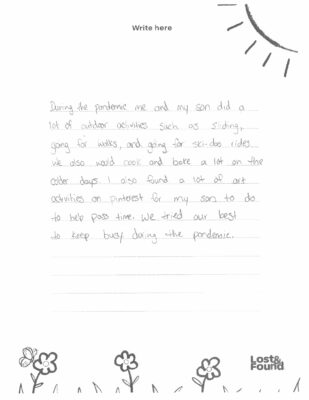 Write here
During the pandemic me and my son did a
lot of outdoor activities such as sliding,
going for walks, and going for ski-doo rides
We also would cook and bake a lot on the
colder days. I also found a lot of art
activities on pinterest for my son to do
to help pass time. We tried our best
to keep busy during the pandemic.
Lost&
Found